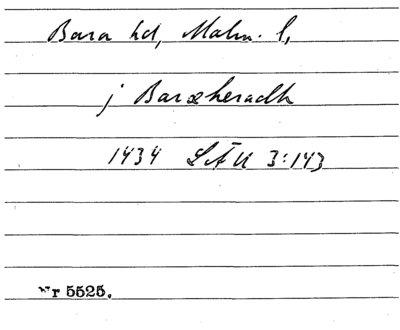 Bara hd, Malm. l,
j Baræheradh
1434 LÄU 3:143
Nr 5525.